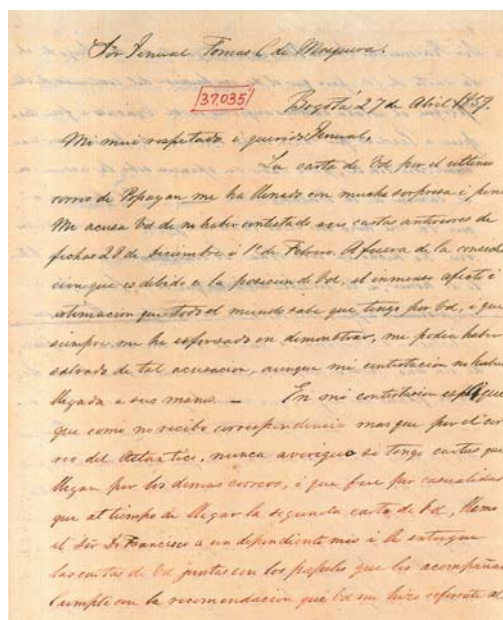 Sõr Jeneral Tomas C de Mosquera.
37,035
Bogotá 27 de Abril 1859.
Mi mui respetado i querido Jeneral,
La carta de Vd por el ultimo
correo de Popayan me ha llenado con mucha sorpresa i pena
Me acusa Vd de no haber contestado sus cartas anteriores de
fechas 28 de diciembre i 1º de Febrero. Afuera de la consedera
cion que es debido a la posicion de Vd, el inmenso afecto i
estimacion que todo el mundo sabe que tengo por Vd, i que
siempre me he esforsado en demonstrar, me podia haber
salvado de tal acusacion, aunque mi contestacion no habia
llegada a sus manos. — En mi contestacion espliqué
que como no recibo correspondencia mas que por el cor
reo del Atlantico, nunca averiguo si tengo cartas que
llegan por los demas correos, i que fué por casualidad
que al tiempo de llegar la segunda carta de Vd, llamó
el Sõr Dr Francisco a un dependiente mio i le entregue
las cartas de Vd juntas con los papeles que los acompañan
Cumpli con la recomendacion que Vd me hizo al